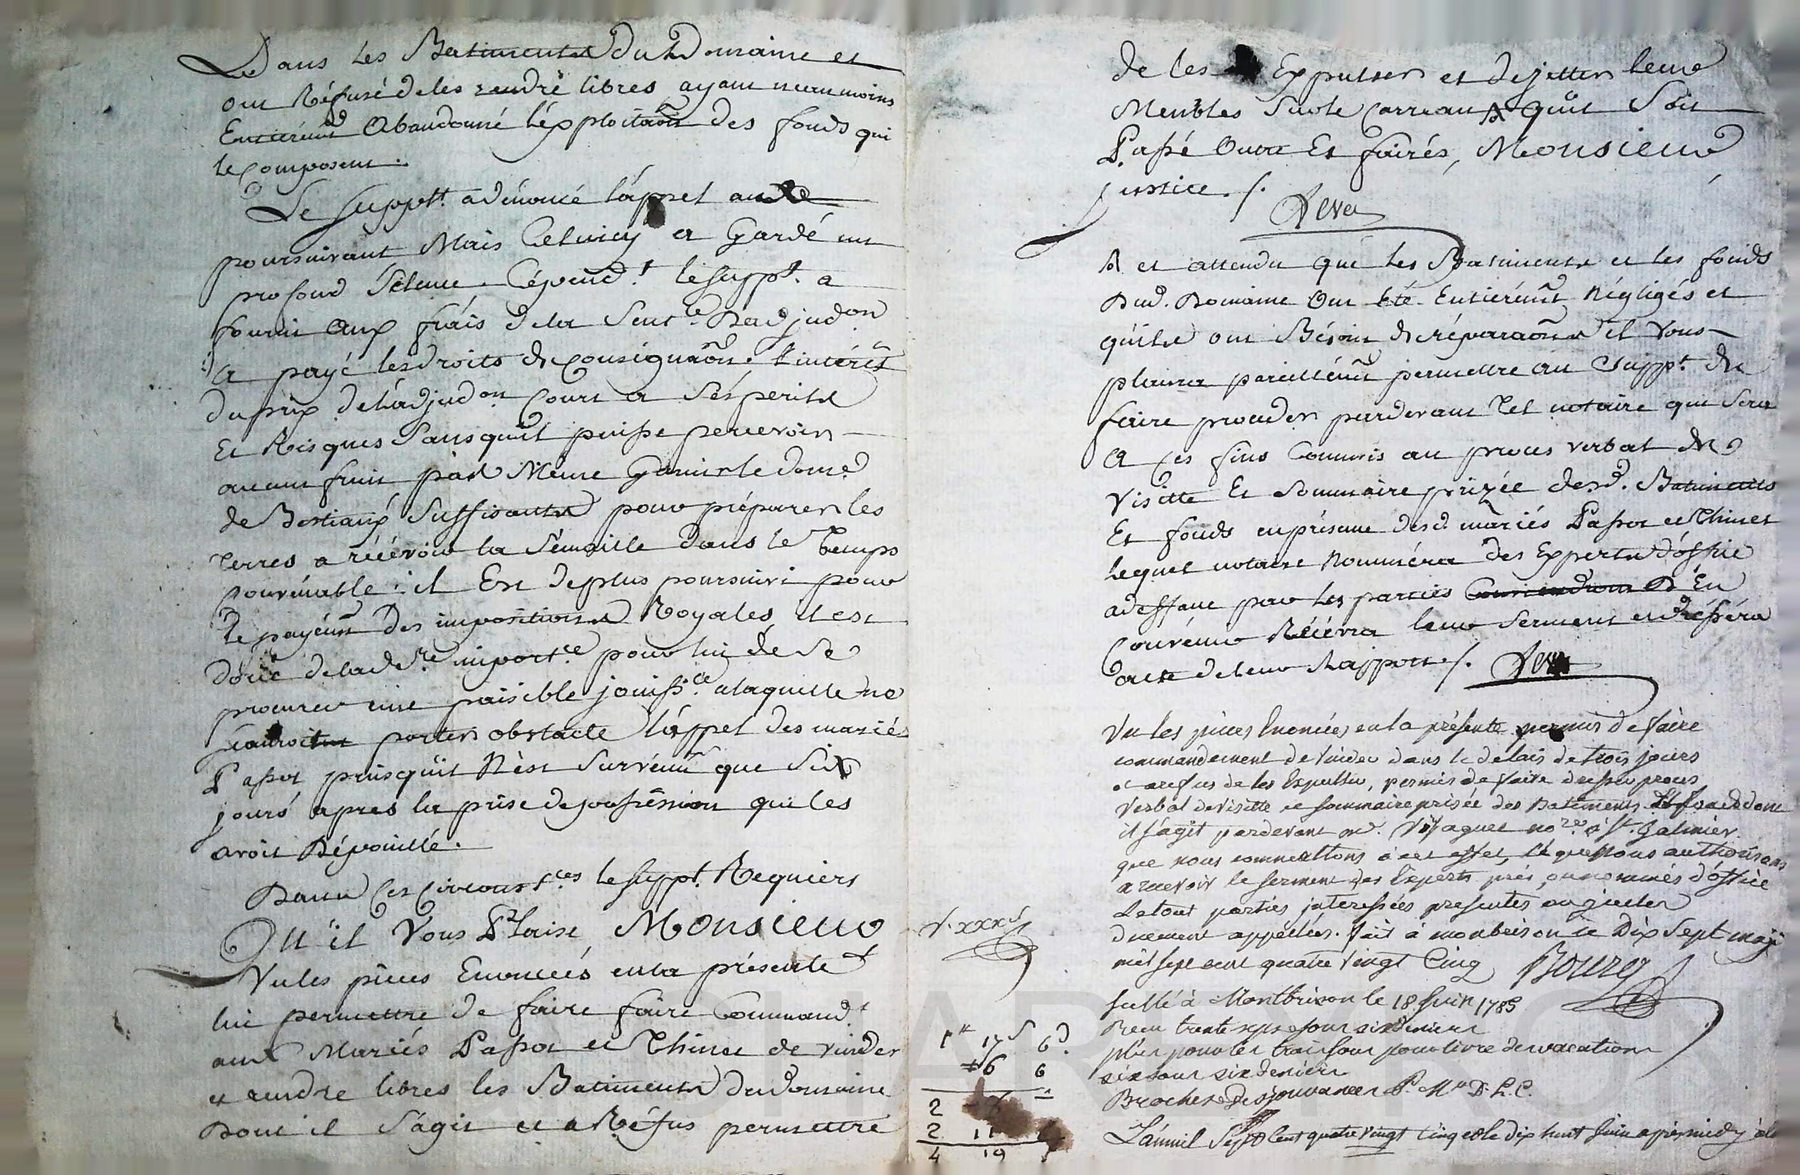 Dans les Batiments du Domaine et
ont Réfusé de les rendre libres ayant neanmoins
Entierémt Abandonné l'éxploitaôn des fonds qui
le composent.
Le suppt. a dénoncé l'appel au
poursuivant Mais Celuicy a Gardé un
profond Silence. Cépendt. le suppt. a
fourni aux frais de la Sentce. Dadjudon
a payé les droits de consignaôn. L'intérêt
du prix de l'adjudon court a Sés perils
Et Risques Sans qu'il puisse percevoir
aucun fruit pas Méme Garnir le domne
de Bestiaux Suffisants pour préparer les
terres a récévoir la Sémaille dans le temps
convénable. il Est de plus poursuivi pour
le payémt Des impositions Royales, il est
donc de la dre. importce. pour lui de Se
procurer une paisible jouissce. a laquelle ne
sauroit porter obstacle l'appel des mariés
Passot puisqu'il N'est Survénu que Six
jours apres la prise de possession qui les
avoit Dépouillé.
Dans Ces Circonstces le suppt. Requiers
Qu'il Vous Plaise Monsieur
Vu les piéces Enoncées en la présente
lui permettre de faire faire Commandt
aux Mariés Passot et Thinet de vuider
et rendre libres les Batiments du Domaine
Dont il S'agit et a Réfus permettre
de les Expulser et dejetter leurs
Meubles Sur le Carreau A qu'il Soit
Passé Outre Et fairés, Monsieur
justice. /.
A et attendu que les Batiments et les fonds
Dud. Domaine Ont été Entierémt Négligés et
qu'ils ont Bésoin de réparaôns il Vous
plaira pareillémt permettre au Suppt. de
faire proceder pardevant tel notaire qui Sera
a Ces fins Commis au procès verbal de
Visitte Et Sommaire prizée desd. Batiments
Et fonds en présence desd. mariés Passot et Thinet
Lequel notaire Nomméra des Experts d'office
a deffaut par les parties D'En
Convénir Récévra leur Serment et dréssera
acte de leur Rapport. /.
Vu les pièces Enoncées en la présente permis de faire
commandement de Vuider dans le delais de trois jours
et a refus de les Expulser, permis de faire dresser proces
Verbal de visitte et sommaire prisée des Batiments et fonds dont
il s'agit pardevant me. nore. à St. Galmier
que nous commettons à cet effet, Et que nous authorisons
a recevoir le serment des Experts pris ou nommés d'office
Le tout parties interessées presentes ou
duement appellées. fait à montbrison le Dix Sept
mil sept cent quatre vingt Cinq
Scellé à Montbrison le 18 Juin 1785
Reçu trente sept sous six deniers
plus pour les trois sous pour livre des vacations
six sous six deniers
L'an mil Sept Cent quatre vingt Cinq et le dix huit Juin
1tt 17s 6d.
6 6
2
2
4 19